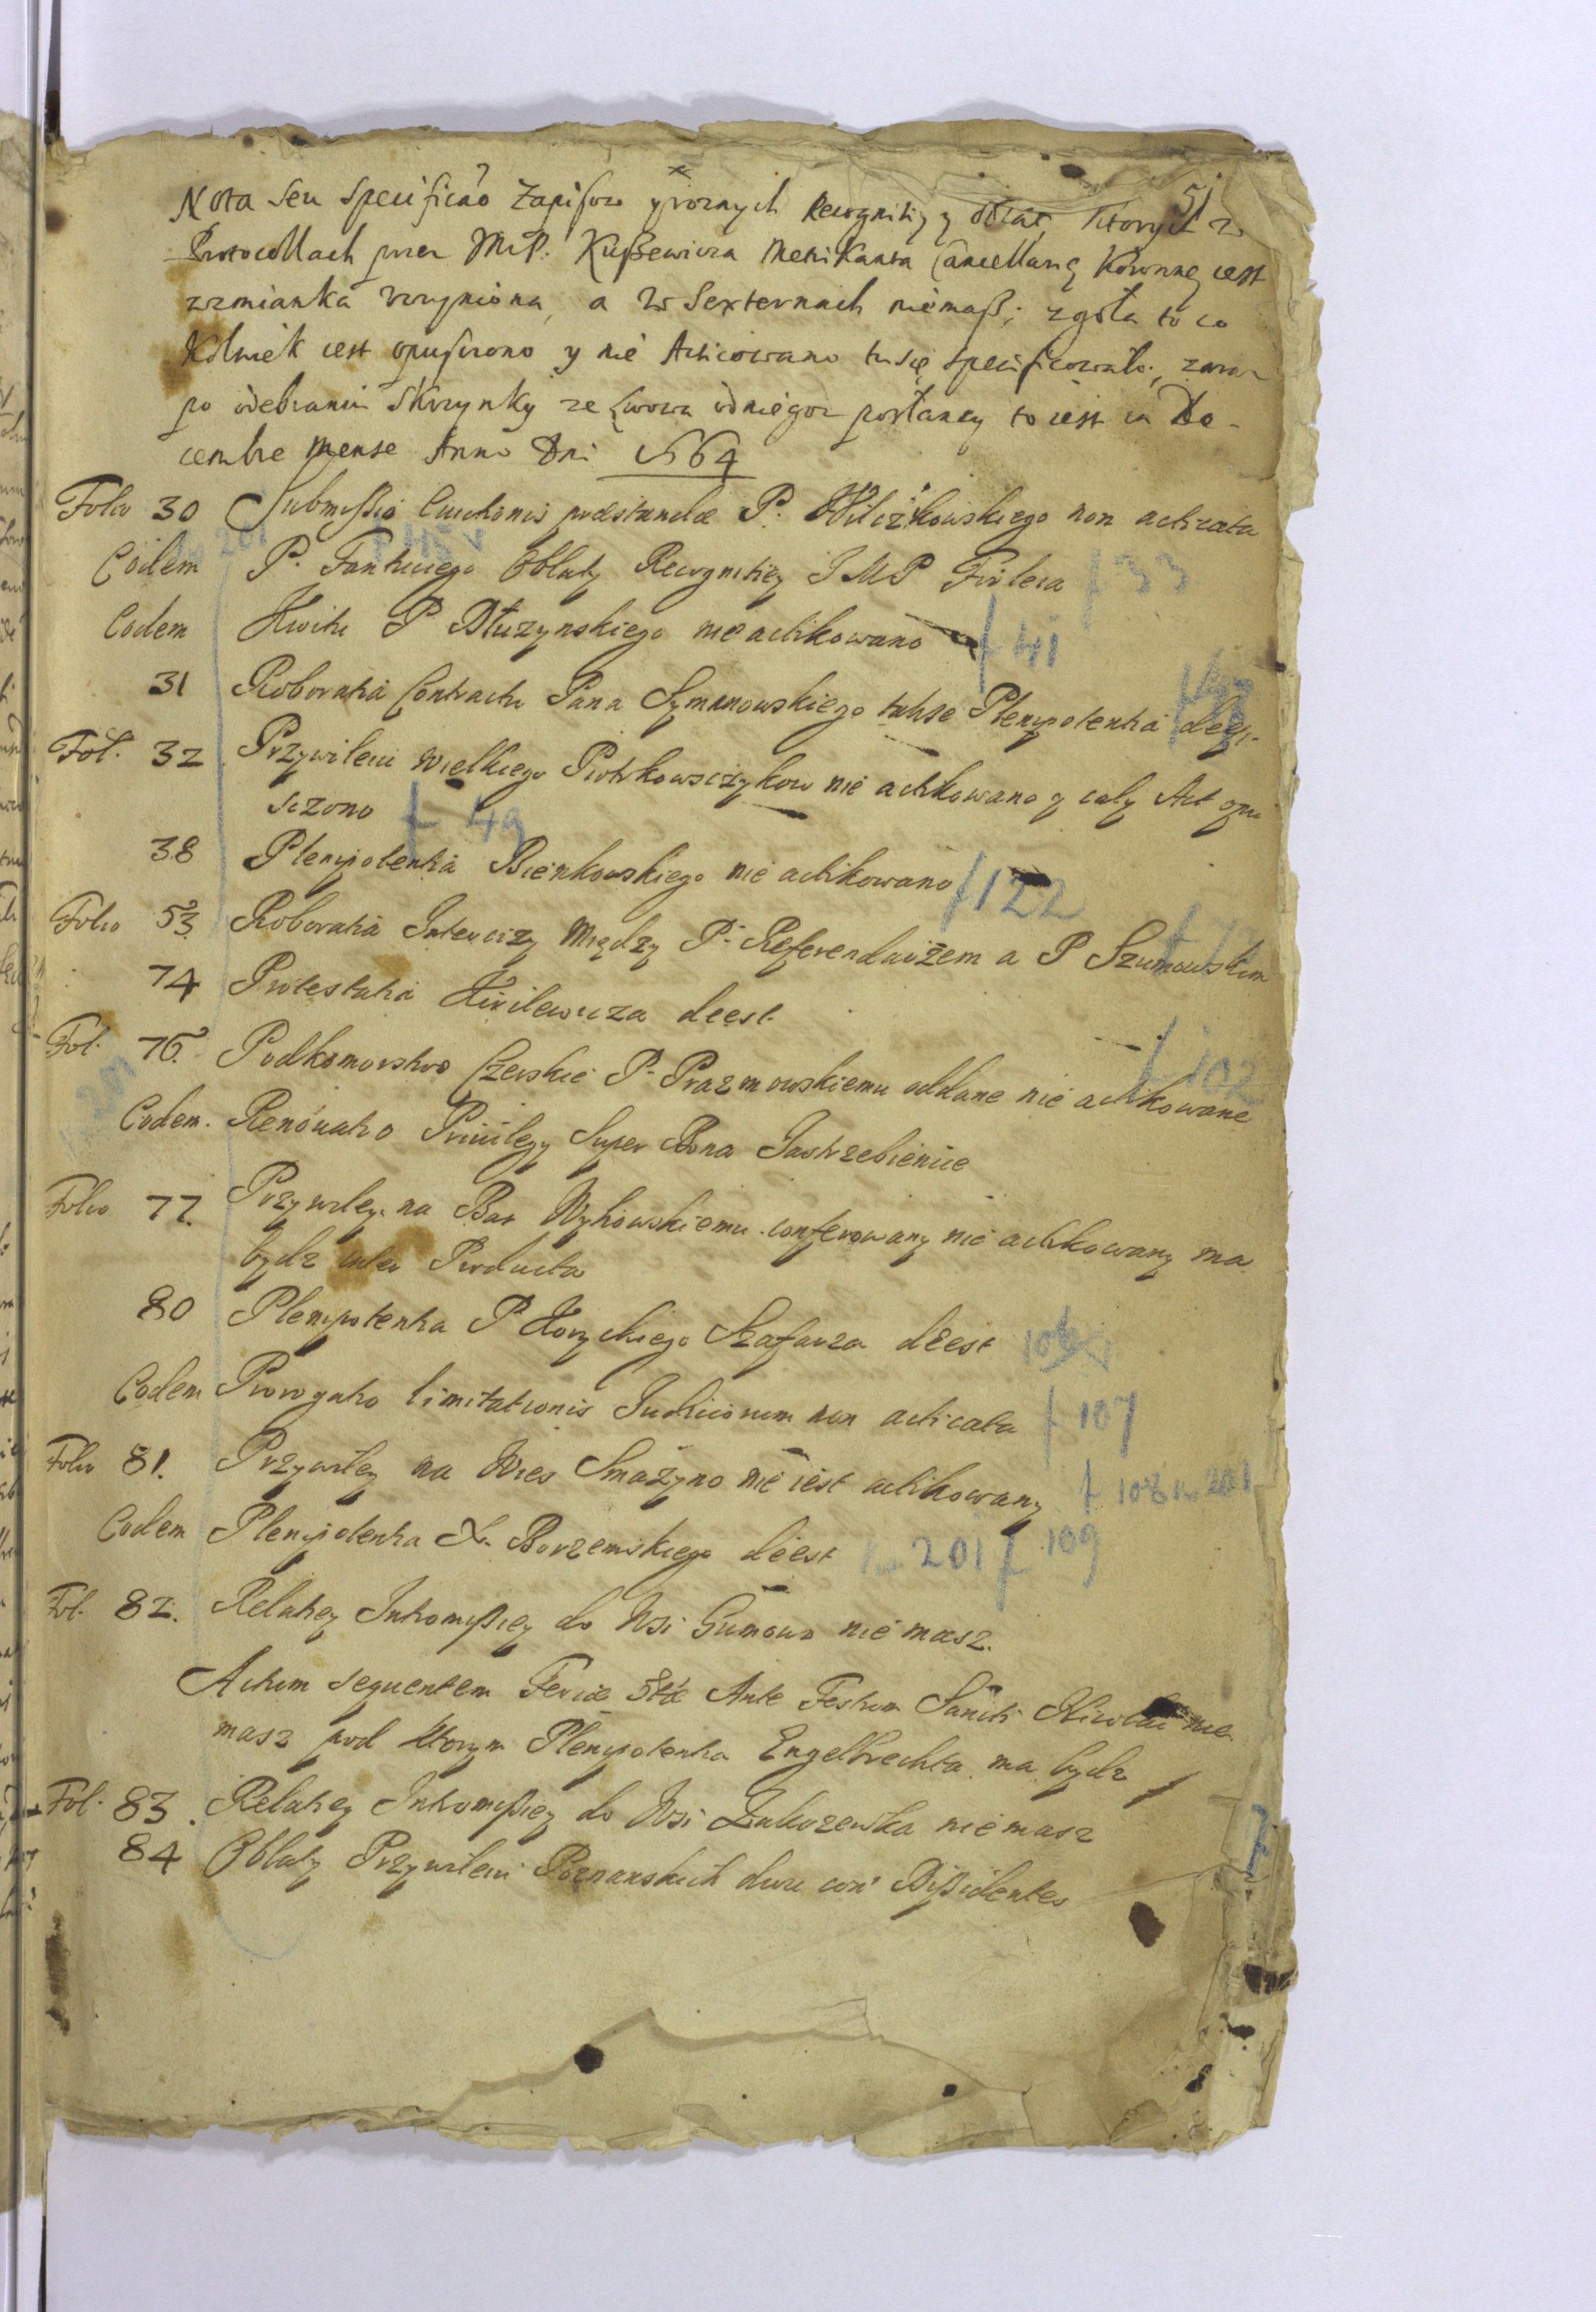 51
Nota seu specificatio Zapisow y roznych Recognitiy y Oblat, ktorych w
Protocollach przez JMP. Kußewicza Metrikanta Cancellariey Koronney iest
wzmianka vczyniona, a w Sexternach niemaß; zgoła to co
kolwiek iest opusczono y nie Acticowano tu się specificowało, zaraz
po odebraniu skrzynky ze Lwowa od niegoz posłaney to iest in De-
cembre mense Anno Dni 1664
Folio 30 Submißio praestandae P. Wilczkowskiego non acticata
Eodem P. Oblaty Recognitiey J M P Firleia f 33
Eodem Kwitu P Dłuzynskiego nie actikowano f 41
31 Roboratia Contractu Pana Szymanowskiego takze Plenipotentia deest
Fol. 32 Przywileiu wielkiego Piotrkowsczykow nie actikowano y caly Act opu
sczono f 49
38 Plenipotentia Bienkowskiego nie actikowano f 122
Folio 53. Roboratia Intercizy Między P. Referendarżem a P Szumowskim
74 Protestatia Kirilewicza deest
Fol. 76. Podkomorstwo Czerskie P. Prazmowskiemu oddane nie actikowane f 102
Eodem. Renouatio Priuilegy Super Bona Jastrzebienice
Folio 77. Przywiley na Bar Wyhowskiemu conferowany nie actikowany ma
bydz inter Producta
80 Plenipotentia P Szafarza deest
Eodem Prorogatio limitationis Iudiciorum non acticata f 107
Folio 81. Przywiley na Wies Smażyno nie iest actikowany f 108 201
Eodem Plenipotentia X. Borzemskiego deest 201 f 109
Fol. 82. Relatiey Intromißiey do Wsi Gumowo nie masz.
Actum sequentem Feriae 5tae Ante Festum Sancti Nicolai nie
masz pod ktorym Plenipotentia Engelbrechta ma bydz
Fol. 83. Relatiey Intromißiey do Wsi niemasz
84 Oblaty Przywileiu Poznanskich dwu con Dißidentes